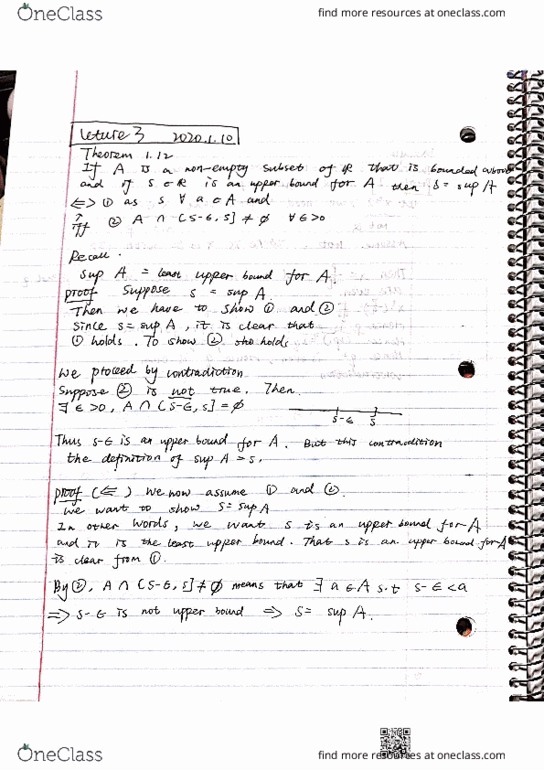 OneClass
find more resources at oneclass.com
Leture 3 2020.1.10
Theorem 1.12
If A is a non-empty subset of ℝ that is bounded above
and if s ∈ ℝ is an upper bound for A then s = sup A
⟺ ① a≤s ∀ a ∈ A and
iff ② A ∩ (s-ε, s] ≠ ∅ ∀ε>0
Recall.
sup A = least upper bound for A
proof Suppose s = sup A
Then we have to show ① and ②
Since s = sup A, it is clear that
① holds. To show ② holds
We proceed by contradiction
Suppose ② is not true. Then
∃ ε >0, A ∩ (s-ε, s] = ∅
s-ε s
Thus s-ε is an upper bound for A. But this contradition
the definition of sup A = s.
proof (⟸) We now assume ① and ②.
We want to show s = sup A
In other words, we want s is an upper bound for A
and it is the least upper bound. That s is an upper bound for A
is clear from ①.
By ②, A ∩ (s-ε, s] ≠ ∅ means that ∃ a ∈ A s.t s-ε < a
⟹ s-ε is not upper bound ⟹ s = sup A.
OneClass
find more resources at oneclass.com